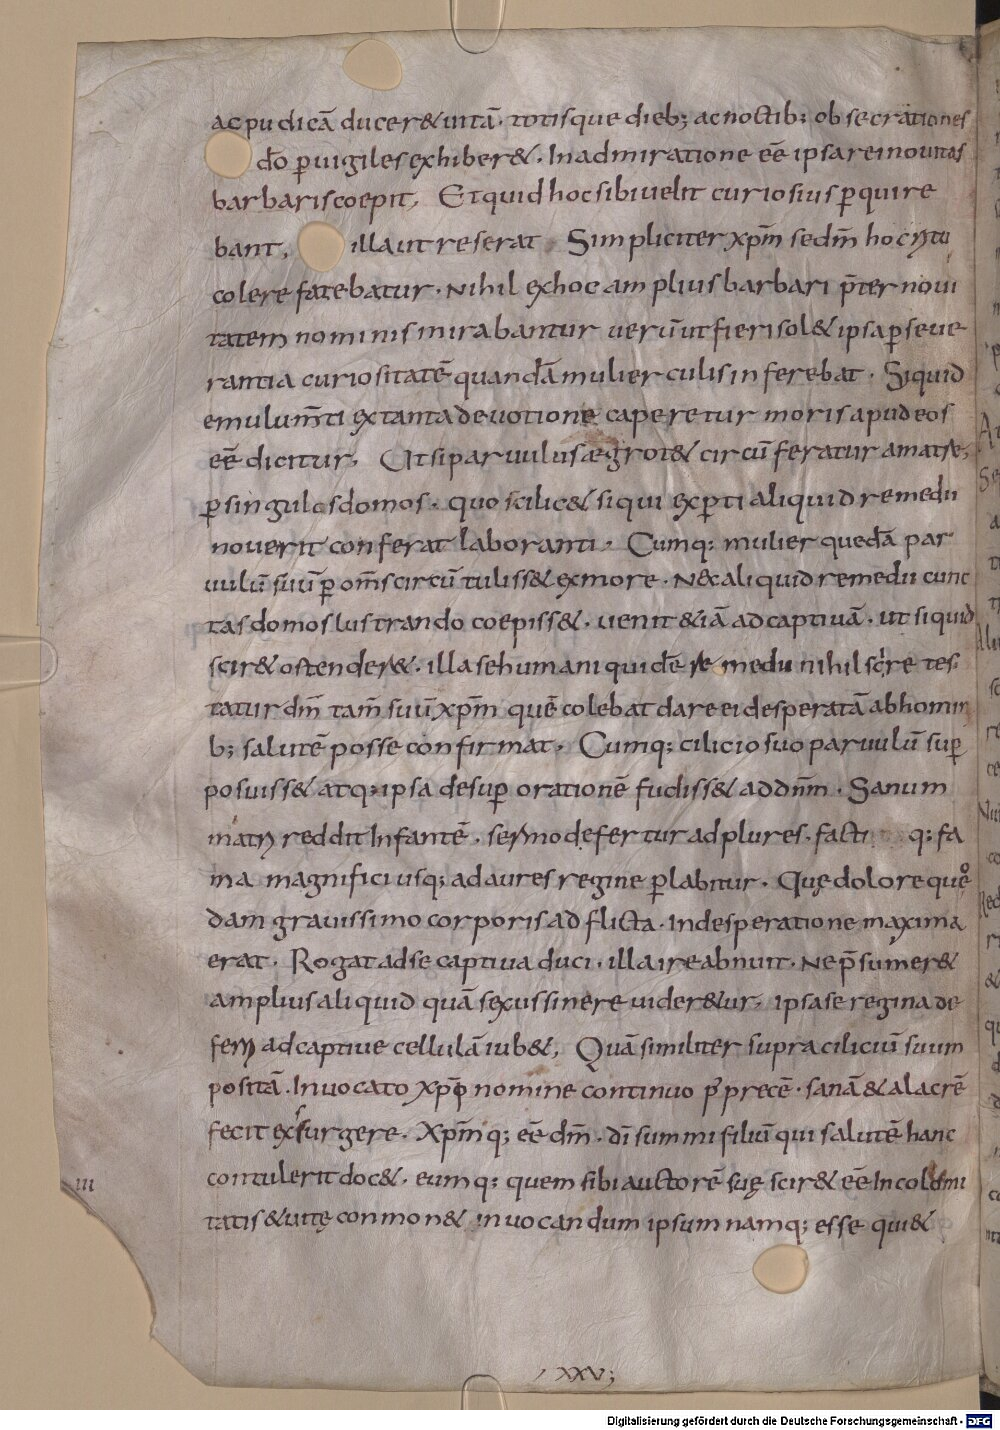 ac pudicā ducer& uitā· totisque dieb; ac noctib; obsecrationes
dō ꝑuigiles exhiber&· In admiratione eē ipsa rei nouitas
barbaris coepit, Et quid hoc sibi uelit curiosius ꝑquire
bant, illa ut res erat Simpliciter xp̄m se dm̄ hoc ritu
colere fatebatur· Nihil ex hoc amplius barbari p̄ter noui
tatem nominis mirabantur uerū ut fieri sol& ipsa ꝑseue
rantia curiositatē quandā mulierculis inferebat· Siquid
emulum̄ti ex tanta deuotione caperetur moris apud eos
eē dicitur, Ut si paruulus ægrot& circū feratur a matre,
ꝑ singulas domos· quo scilic& siqui exꝑti aliquid remedii
nouerit conferat laboranti· Cumq; mulier quedā par
uulū suū ꝑ om̄s circū tuliss& ex more· Nec aliquid remedii cunc
tas domos lustrando coepiss&· uenit & iā ad captiuā· ut siquid
scir& ostender&· illa se humani quidē remedii nihil scire tes
tatur dm̄ tam̄ suū xp̄m quē colebat dare ei desperatā ab homin
b; salutē posse confirmat· Cumq; cilicio suo paruulū suꝑ
posuiss& atq; ipsa desuꝑ orationē fudiss& ad dn̄m· Sanum
matri reddit Infantē· sermo defertur ad plures· facti q; fa
ma magnifici usq; ad aures regine ꝑlabitur· Quę dolore quo
dam grauissimo corporis adflicta· In desperatione maxima
erat· Rogat ad se captiua duci· illa ire abnuit· Ne p̄sumer&
amplius aliquid quā sexus sinere uider&ur, ipsa se regina de
ferri ad captiue cellulā iub&, Quā similiter supra ciliciū suum
positā· Inuocato xp̄o nomine continuo p̄ precē· sanā & alacrē
fecit exsurgere· Xp̄mq; eē dm̄· dī summi filiū qui salutē hanc
contulerit doc&· eumq; quem sibi auctorē suę scir& eē Incolomi
tatis & uitę conmon& inuocandum ipsum namq; esse qui &
III
, XXV;
Digitalisierung gefördert durch die Deutsche Forschungsgemeinschaft - DFG